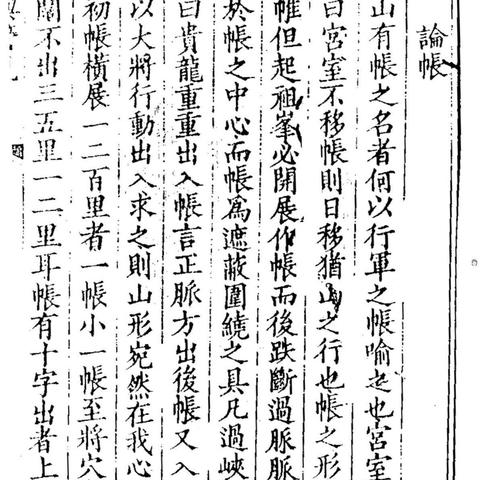 論帳
山有帳之名者何以行軍之帳喻之也宮室
曰宮室不移帳則日移猶山之行也帳之形
帷但起祖峯必開展作帳而後跌斷過脈脈
於帳之中心而帳為遮蔽圍繞之具凡過峽
曰貴龍重重出入帳言正脈方出後帳又入
以大將行動出入求之則山形宛然在我心
初帳橫展一二百里者一帳小一帳至將穴
闊不出三五里一二里耳帳有十字出者上